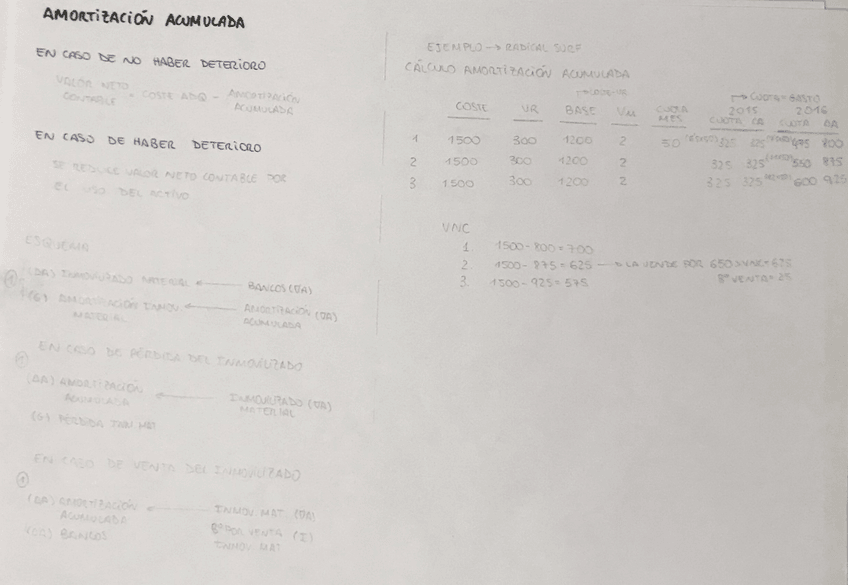 AMORTIZACIÓN ACUMULADA
EN CASO DE NO HABER DETERIORO
VALOR NETO CONTABLE = COSTE ADQ - AMORTIZACIÓN ACUMULADA
EN CASO DE HABER DETERIORO
SE REDUCE VALOR NETO CONTABLE POR
EL USO DEL ACTIVO
ESQUEMA
INMOVILIZADO MATERIAL ← BANCOS
(G) AMORTIZACIÓN INMOV. MATERIAL ← AMORTIZACIÓN ACUMULADA
EN CASO DE PÉRDIDA DEL INMOVILIZADO
AMORTIZACIÓN ACUMULADA ← INMOVILIZADO MATERIAL
(G) PÉRDIDA INM MAT
EN CASO DE VENTA DEL INMOVILIZADO
①
AMORTIZACIÓN ACUMULADA ← INMOV. MAT
BANCOS
Bº POR VENTA (I) INMOV. MAT
EJEMPLO → RADICAL SURF
CÁLCULO AMORTIZACIÓN ACUMULADA
→ CUOTA = GASTO
2015 2016
COSTE VR BASE VU CUOTA MES CUOTA CUOTA
1 1500 300 1200 2 50 325 325 475 800
2 1500 300 1200 2 325 325 550 875
3 1500 300 1200 2 325 325 600 925
VNC
1. 1500-800=700
2. 1500-875=625 → LA VENDE POR 650 > VNC=625
Bº VENTA=25
3. 1500-925=575